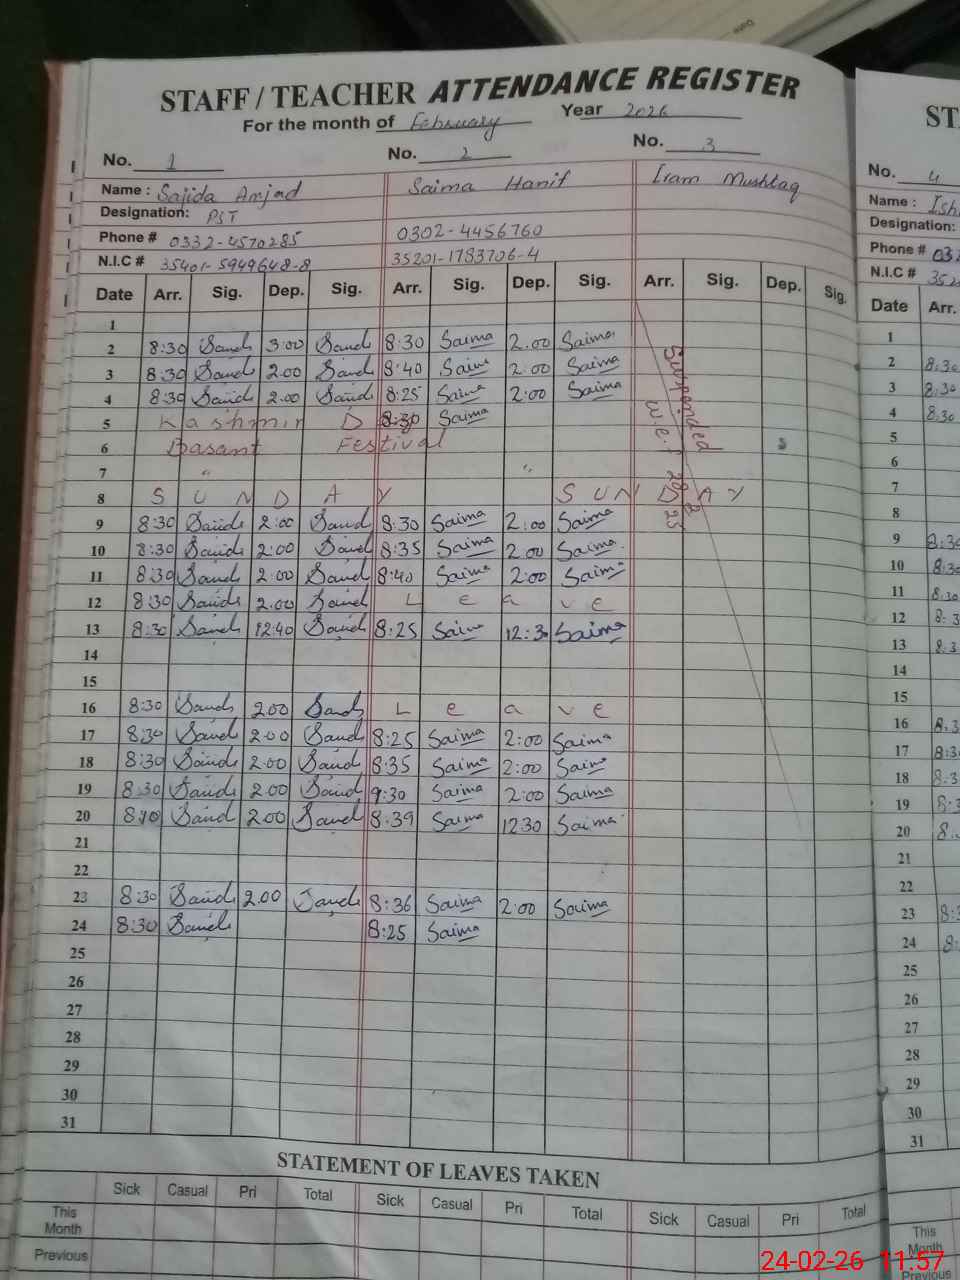 STAFF / TEACHER ATTENDANCE REGISTER
For the month of February Year 2026
No. 1 No. 2 No. 3
Name : Sajida Amjad Saima Hanif Iram Mushtaq
Designation: PST
Phone # 0332-4570285 0302-4456760
N.I.C # 35401-5949648-8 35201-1783706-4
Date Arr. Sig. Dep. Sig. Arr. Sig. Dep. Sig. Arr. Sig. Dep. Sig.
1
2 8:30 3:00 8:30 Saima 2.00 Saima
3 8:30 2.00 8:40 Saima 2:00 Saima
4 8:30 2.00 8:25 Saima 2:00 Saima
5 Kashmir D 8:30 Saima
6 Basant Festival
7 " "
8 SUNDAY SUNDAY
9 8:30 2:00 8:30 Saima 2:00 Saima
10 8:30 2:00 8:35 Saima 2.00 Saima
11 8:30 2:00 8:40 Saima 2:00 Saima
12 8:30 2.00 Leave
13 8:30 12:40 8:25 Saima 12:30 Saima
14
15
16 8:30 2.00 Leave
17 8:30 2:00 8:25 Saima 2:00 Saima
18 8:30 2.00 8:35 Saima 2:00 Saima
19 8:30 2.00 9:30 Saima 2:00 Saima
20 2.00 8:39 Saima 1230 Saima
21
22
23 8:30 2.00 8:36 Saima 2:00 Saima
24 8:30 8:25 Saima
25
26
27
28
29
30
31
Suspended
w.e.f
STATEMENT OF LEAVES TAKEN
Sick Casual Pri Total Sick Casual Pri Total Sick Casual Pri Total
This Month
Previous
ST
No. 4
Name : Ish
Designation:
Phone # 03
N.I.C # 352
Date Arr.
1
2 8:30
3 8:30
4 8:30
5
6
7
8
9 8:30
10 8:30
11 8:30
12 8:3
13 8.3
14
15
16 8.3
17 8:3
18 8.3
19 8:3
20 8.
21
22
23 8:3
24 8:
25
26
27
28
29
30
31
This Month
Previous
24-02-26 11:57